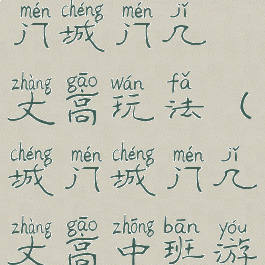 mén chéng mén jǐ
门城门几
zhàng gāo wán fǎ
丈高玩法（
chéng mén chéng mén jǐ
城门城门几
zhàng gāo zhōng bān yóu
丈高中班游